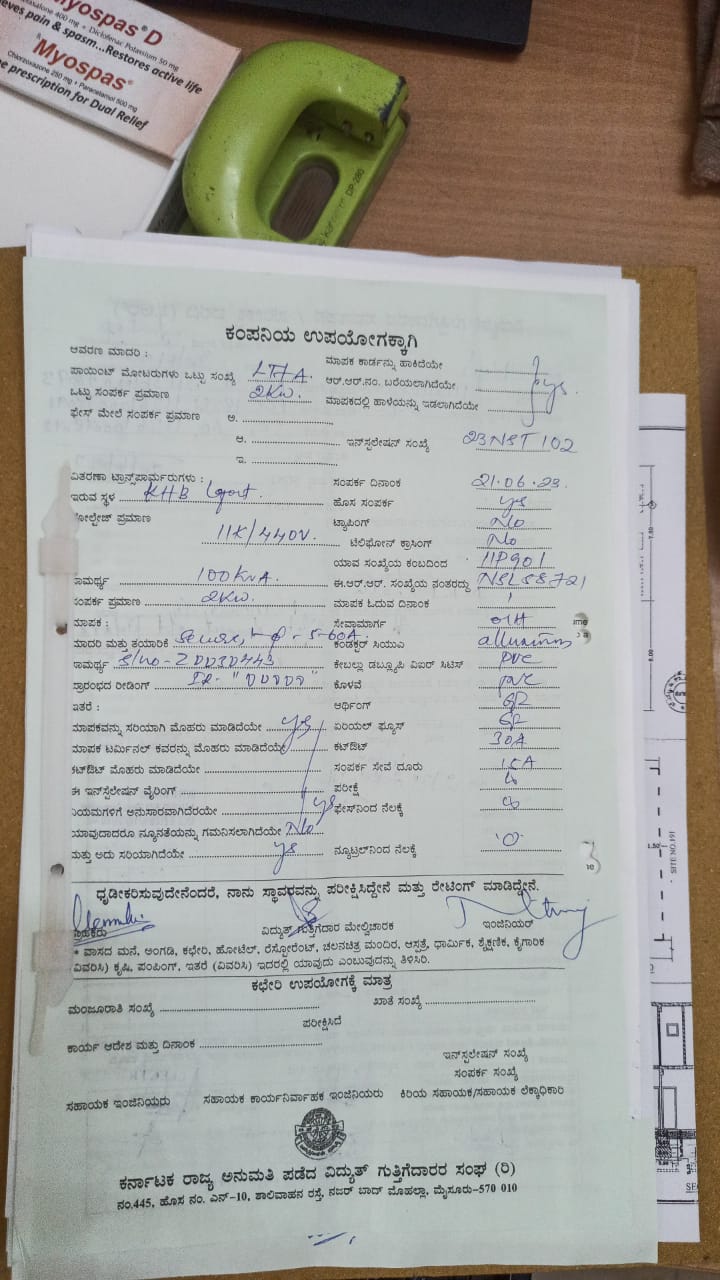 Myospas® D
Chlorzoxazone 400 mg + Diclofenac Potassium 50 mg
eves pain & spasm...Restores active life
Myospas®
Chlorzoxazone 250 mg + Paracetamol 500 mg
e prescription for Dual Relief
DP-280
ಕಂಪನಿಯ ಉಪಯೋಗಕ್ಕಾಗಿ
ಆವರಣ ಮಾದರಿ :
ಮಾಪಕ ಕಾರ್ಡನ್ನು ಹಾಕಿದೆಯೇ
ಪಾಯಿಂಟ್ ಮೋಟರುಗಳು ಒಟ್ಟು ಸಂಖ್ಯೆ
ಆರ್.ಆರ್.ನಂ. ಬರೆಯಲಾಗಿದೆಯೇ yes.
ಒಟ್ಟು ಸಂಪರ್ಕ ಪ್ರಮಾಣ 2Kw.
ಮಾಪಕದಲ್ಲಿ ಹಾಳೆಯನ್ನು ಇಡಲಾಗಿದೆಯೇ
ಫೇಸ್ ಮೇಲೆ ಸಂಪರ್ಕ ಪ್ರಮಾಣ ಅ.
ಆ. ಇನ್‌ಸ್ಟಲೇಷನ್ ಸಂಖ್ಯೆ 23NST102
ಇ.
ವಿತರಣಾ ಟ್ರಾನ್ಸ್‌ಪಾರ್ಮರುಗಳು : ಸಂಪರ್ಕ ದಿನಾಂಕ 21.06.23
ಇರುವ ಸ್ಥಳ KHB Layout. ಹೊಸ ಸಂಪರ್ಕ yes
ವೋಲ್ಟೇಜ್ ಪ್ರಮಾಣ 11K/440V. ಟ್ಯಾಪಿಂಗ್ No
ಟೆಲಿಫೋನ್ ಕ್ರಾಸಿಂಗ್ No
ಯಾವ ಸಂಖ್ಯೆಯ ಕಂಬದಿಂದ 11P901
ಸಾಮರ್ಥ್ಯ 100KVA ಈ.ಆರ್.ಆರ್. ಸಂಖ್ಯೆಯ ನಂತರದ್ದು
ಸಂಪರ್ಕ ಪ್ರಮಾಣ 2Kw. ಮಾಪಕ ಓದುವ ದಿನಾಂಕ
ಮಾಪಕ : ಸೇವಾಮಾರ್ಗ OH
ಮಾದರಿ ಮತ್ತು ತಯಾರಿಕೆ Secure, 5-60A ಕಂಡಕ್ಟರ್ ಸಿಯುಎ
ಸಾಮರ್ಥ್ಯ ಕೇಬಲ್ಲು ಡಬ್ಲ್ಯೂಪಿ ವಿಐರ್ ಸಿಟಿಸ್ pvc
ಪ್ರಾರಂಭದ ರೀಡಿಂಗ್ ಕೊಳವೆ pvc
ಇತರೆ : ಆರ್ಥಿಂಗ್
ಮಾಪಕವನ್ನು ಸರಿಯಾಗಿ ಮೊಹರು ಮಾಡಿದೆಯೇ yes ಏರಿಯಲ್ ಫ್ಯೂಸ್
ಮಾಪಕ ಟರ್ಮಿನಲ್ ಕವರನ್ನು ಮೊಹರು ಮಾಡಿದೆಯೇ ಕಟ್‌ಔಟ್ 30A
ಕಟ್‌ಔಟ್ ಮೊಹರು ಮಾಡಿದೆಯೇ ಸಂಪರ್ಕ ಸೇವೆ ದೂರು 15A
ಈ ಇನ್‌ಸ್ಟೆಲೇಷನ್ ವೈರಿಂಗ್ ಪರೀಕ್ಷೆ
ನಿಯಮಗಳಿಗೆ ಅನುಸಾರವಾಗಿದೆರಯೇ yes ಫೇಸ್‌ನಿಂದ ನೆಲಕ್ಕೆ
ಯಾವುದಾದರೂ ನ್ಯೂನತೆಯನ್ನು ಗಮನಿಸಲಾಗಿದೆಯೇ No
ಮತ್ತು ಅದು ಸರಿಯಾಗಿದೆಯೇ yes ನ್ಯೂಟ್ರಲ್‌ನಿಂದ ನೆಲಕ್ಕೆ 0
ಧೃಡೀಕರಿಸುವುದೇನೆಂದರೆ, ನಾನು ಸ್ಥಾವರವನ್ನು ಪರೀಕ್ಷಿಸಿದ್ದೇನೆ ಮತ್ತು ರೇಟಿಂಗ್ ಮಾಡಿದ್ದೇನೆ.
ವಿದ್ಯುತ್ ಗುತ್ತಿಗೆದಾರ ಮೇಲ್ವಿಚಾರಕ ಇಂಜಿನಿಯರ್
* ವಾಸದ ಮನೆ, ಅಂಗಡಿ, ಕಛೇರಿ, ಹೋಟೆಲ್, ರೆಸ್ಟೋರೆಂಟ್, ಚಲನಚಿತ್ರ ಮಂದಿರ, ಆಸ್ಪತ್ರೆ, ಧಾರ್ಮಿಕ, ಶೈಕ್ಷಣಿಕ, ಕೈಗಾರಿಕ
ವಿವರಿಸಿ) ಕೃಷಿ, ಪಂಪಿಂಗ್, ಇತರೆ (ವಿವರಿಸಿ) ಇದರಲ್ಲಿ ಯಾವುದು ಎಂಬುವುದನ್ನು ತಿಳಿಸಿರಿ.
ಕಛೇರಿ ಉಪಯೋಗಕ್ಕೆ ಮಾತ್ರ
ಮಂಜೂರಾತಿ ಸಂಖ್ಯೆ ಖಾತೆ ಸಂಖ್ಯೆ
ಪರೀಕ್ಷಿಸಿದೆ
ಕಾರ್ಯ ಆದೇಶ ಮತ್ತು ದಿನಾಂಕ
ಇನ್‌ಸ್ಟಲೇಷನ್ ಸಂಖ್ಯೆ
ಸಂಪರ್ಕ ಸಂಖ್ಯೆ
ಸಹಾಯಕ ಇಂಜಿನಿಯರು ಸಹಾಯಕ ಕಾರ್ಯನಿರ್ವಾಹಕ ಇಂಜಿನಿಯರು ಕಿರಿಯ ಸಹಾಯಕ/ಸಹಾಯಕ ಲೆಕ್ಕಾಧಿಕಾರಿ
ಕರ್ನಾಟಕ ರಾಜ್ಯ ಅನುಮತಿ ಪಡೆದ ವಿದ್ಯುತ್ ಗುತ್ತಿಗೆದಾರರ ಸಂಘ (ರಿ)
ನಂ.445, ಹೊಸ ನಂ. ಎನ್-10, ಶಾಲಿವಾಹನ ರಸ್ತೆ, ನಜರ್ ಬಾದ್ ಮೊಹಲ್ಲಾ, ಮೈಸೂರು-570 010
SITE NO.191